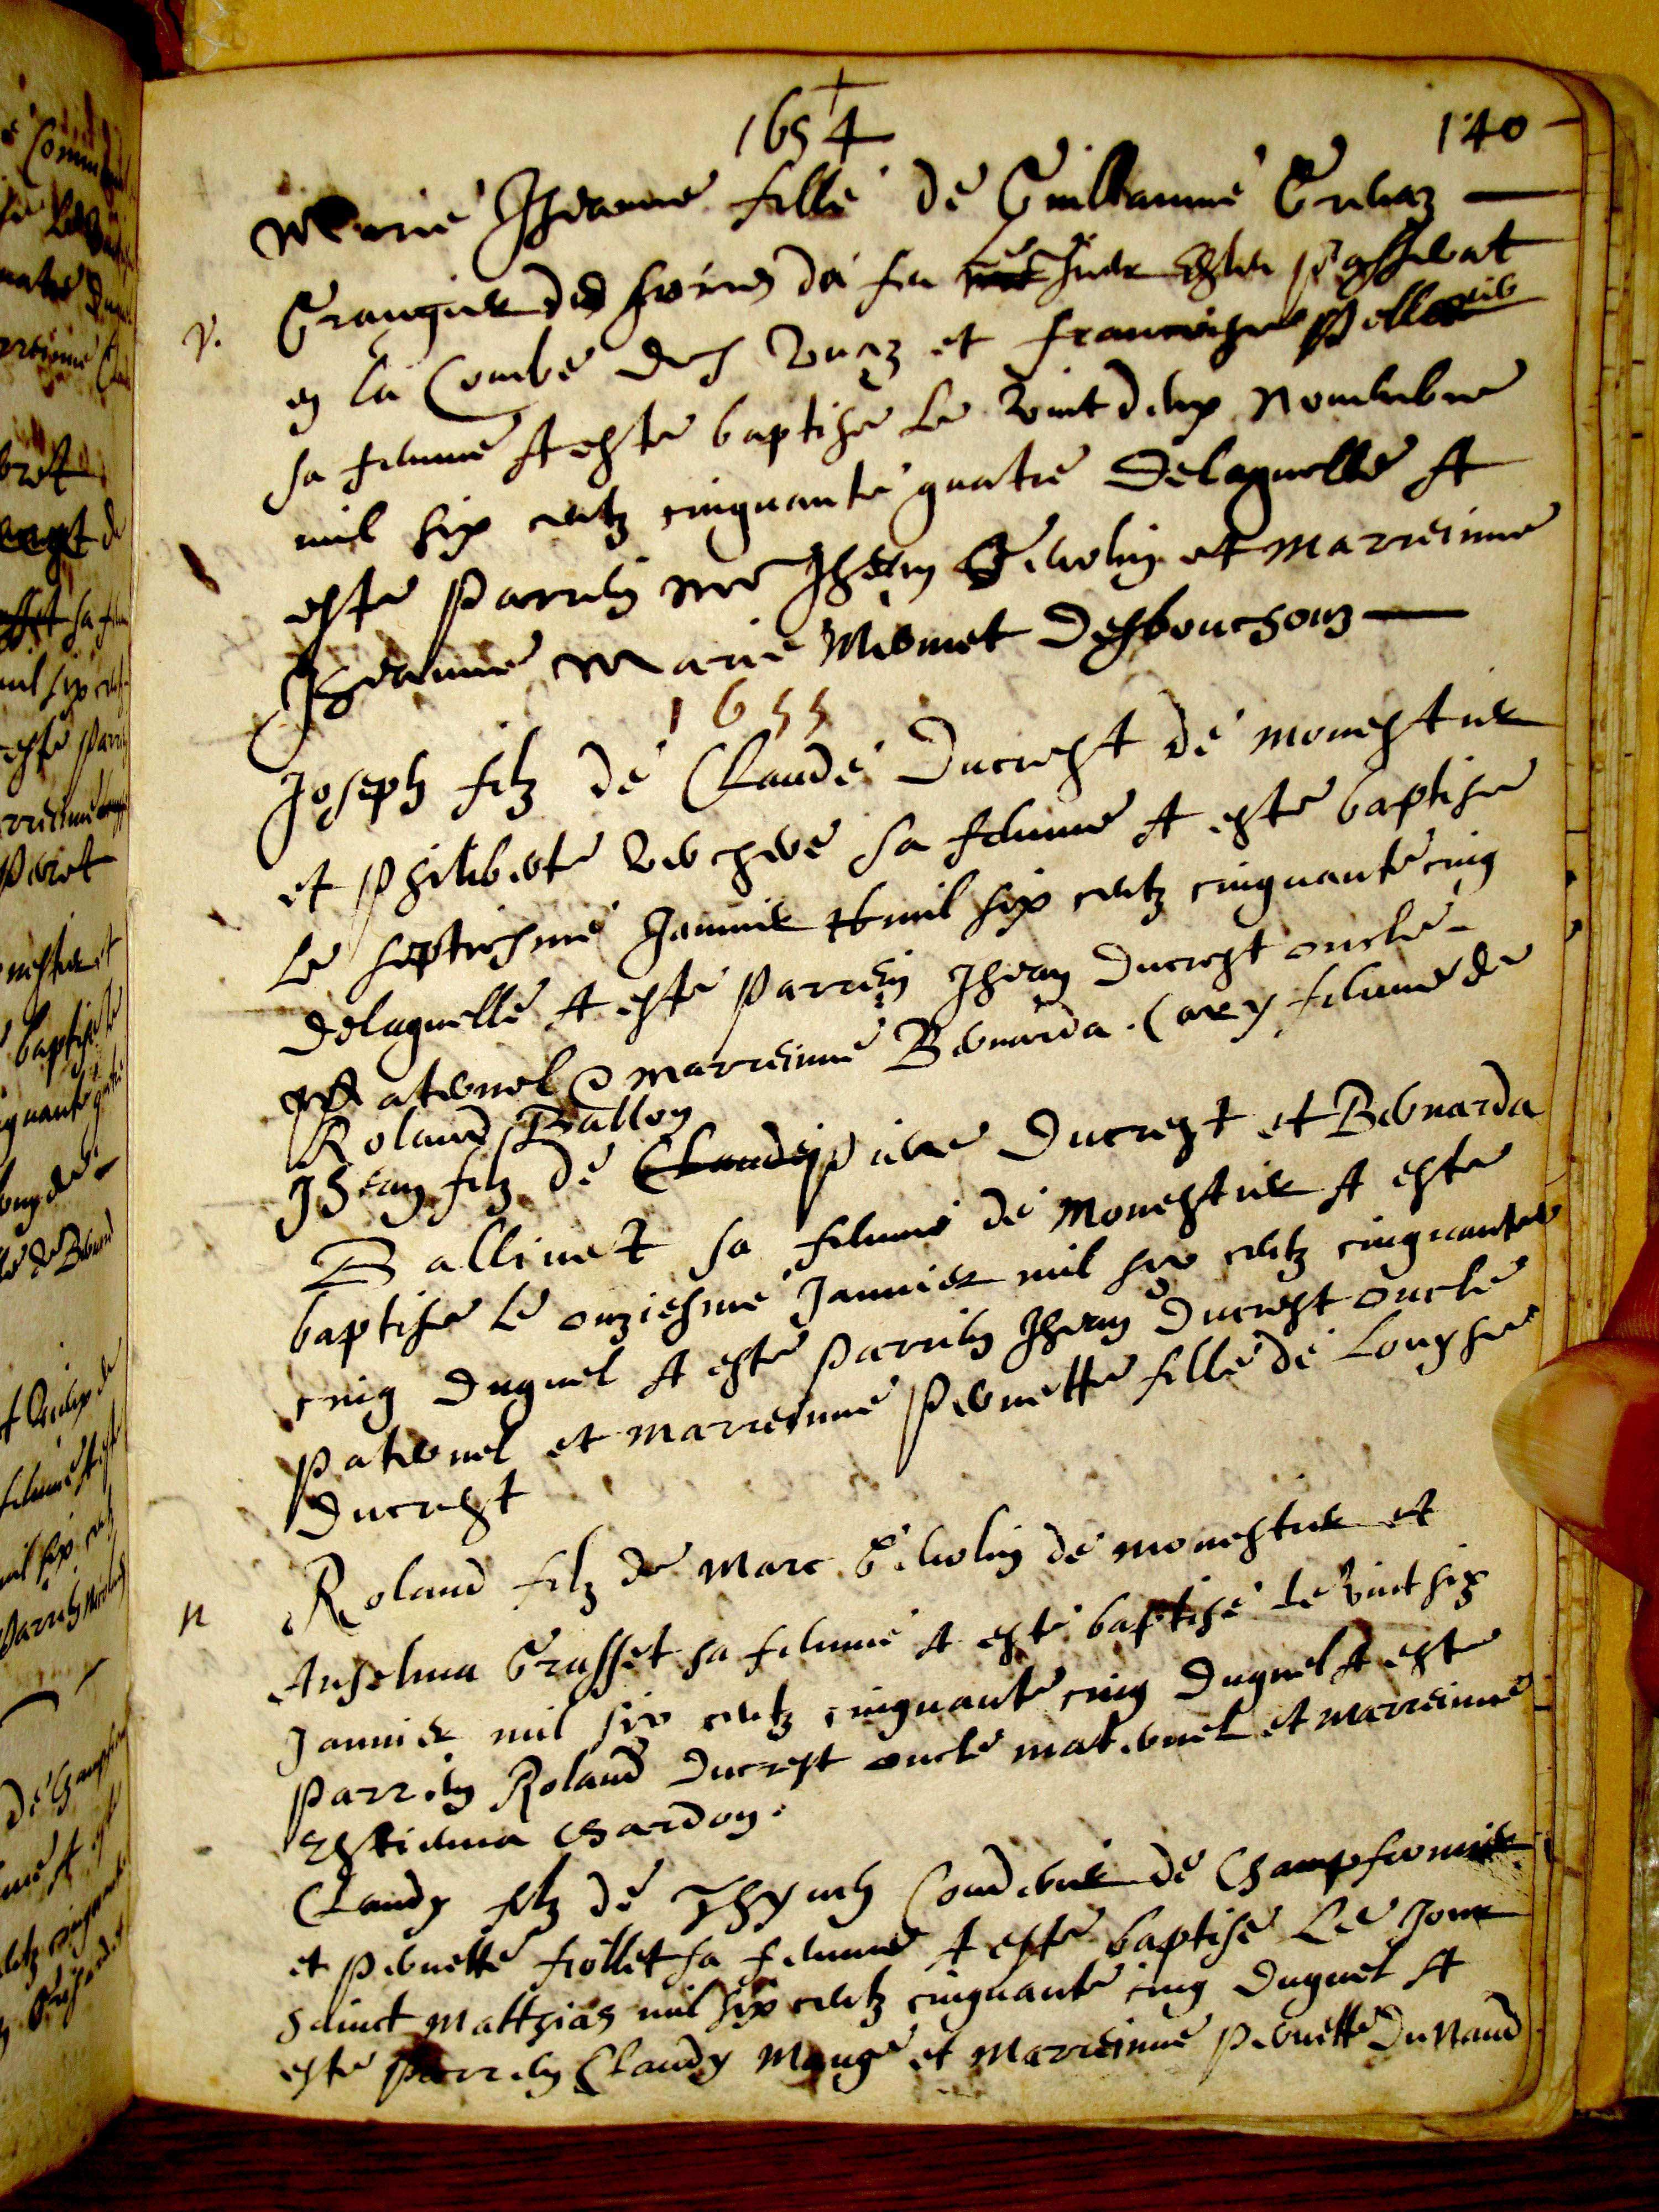 1654
140
Marie Jheanne fille de Guillaume Grevaz
v. Grangier des hoirs du feu
en la Combe des Vuaz et francoise
sa femme A este baptise Le vint deux Novembre
mil six centz cinquante quatre De laquelle A
este Parrein me Jhean Genolin et Marreinne
Jheanne Marie Monet Desbouchouz
1655
Joseph filz de Claude Ducrest de monestier
et Philiberte Verchere sa femme A este baptise
Le septiesme Jannier mil six centz cinquante cinq
De laquelle A este Parrein Jhean Ducrest oncle
Paternel & marreinne Bernarda Carry femme de
Roland Ballon
Jhean filz de Claude Piere Ducrest et Bernarda
Ballivet sa femme de Monestier A este
baptise Le onziesme Jannier mil six centz cinquante
cinq Duquel A este Parrein Jhean Ducrest oncle
Paternel et marreinne Pernette fille de Louyse
Ducrest
n Roland filz de Marc Genolin de monestier et
Anselma Grasset sa femme A este baptise Le vint six
Jannier mil six centz cinquante cinq Duquel A este
Parrein Roland Ducrest oncle maternel et Marreinne
Estienna Chardon.
Claudy filz de Thyven Conderier de Champfromier
et Pernette frollet sa femme A este baptise Le Jour
Sainct Matthias mil six centz cinquante cinq Duquel A
este Parrein Claudy Monge et Marreinne Pernette Dunand